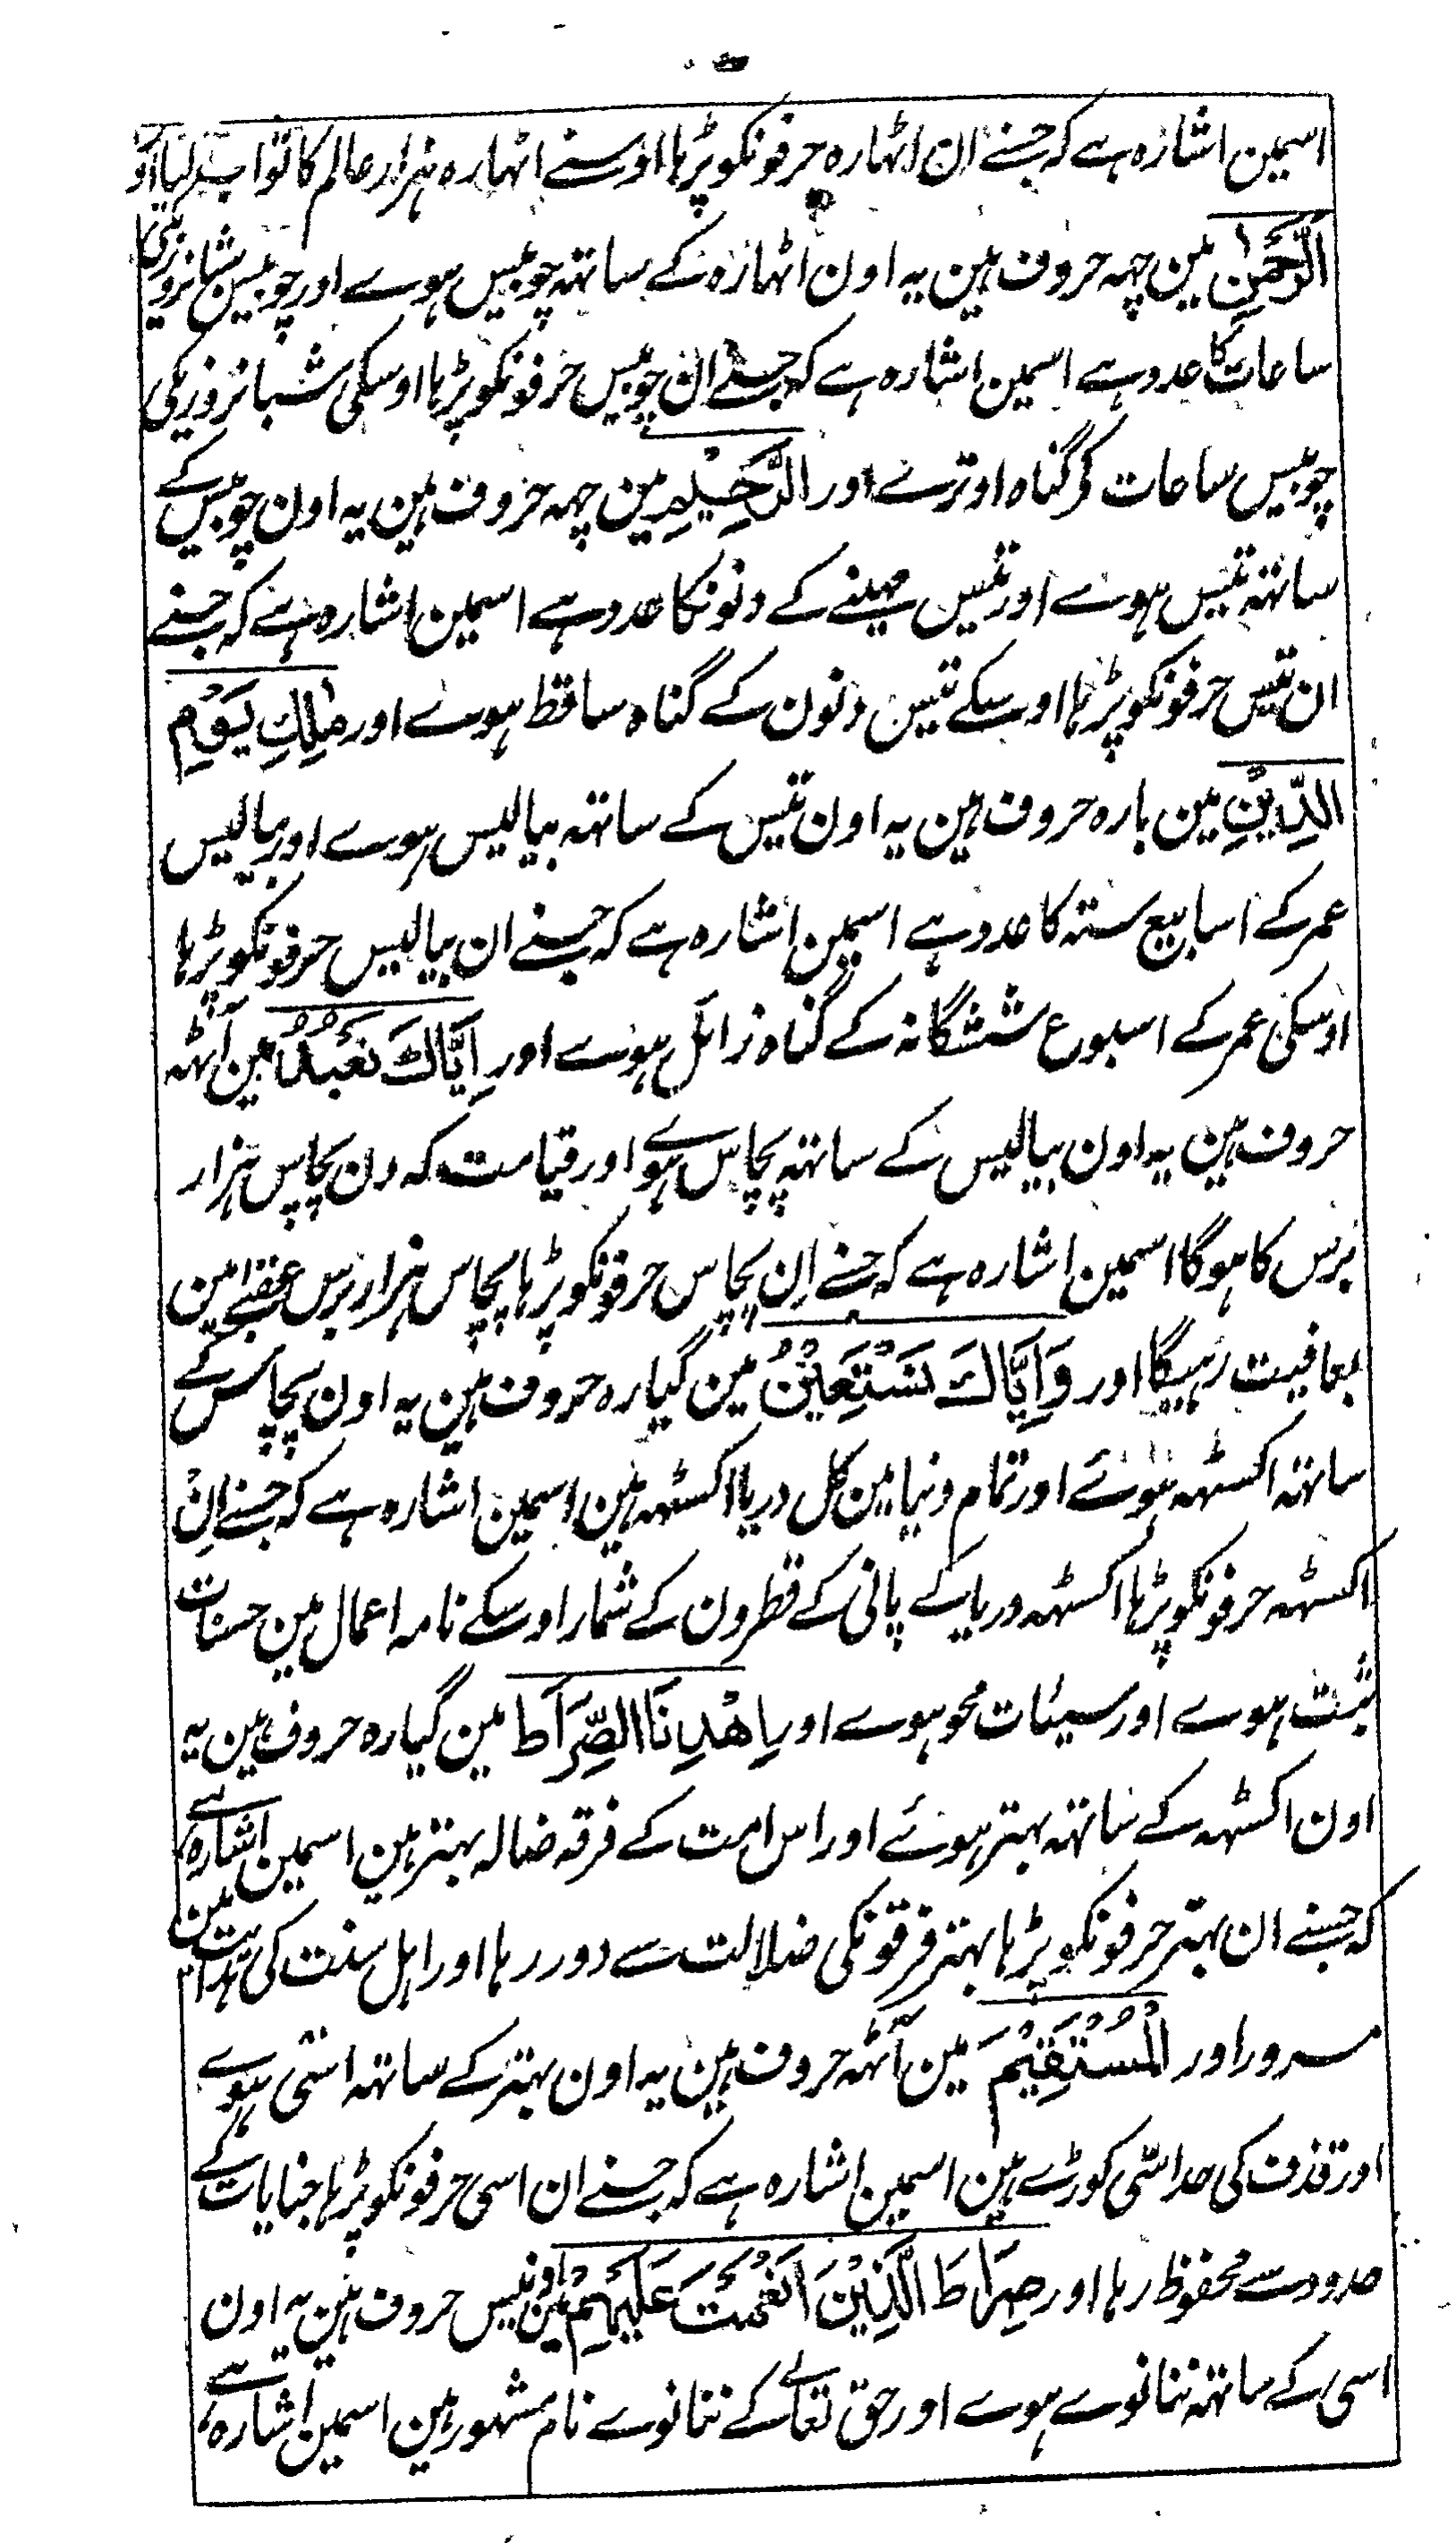 اسمین اشارہ ہے کہ جسنے ان اٹہارہ حرفونکو پڑہا اوسنے اٹہارہ ہزار عالم کا ثواب لیا اور
الرَّحْمٰنِ مین چہہ حروف ہین یہ اون اٹہارہ کے ساتہہ چوبیس ہوے اور چوبیس شبانروزیکی
ساعات کا عدد ہے اسمین اشارہ ہے کہ جسنے ان چوبیس حرفونکو پڑہا اوسکی شبانروزیکی
چوبیس ساعات کر گناہ اوترے اور الرَّحِیْمِ مین چہہ حروف ہین یہ اون چوبیس کے
ساتہہ تیس ہوے اور تیس مہینے کے دنونکا عدد ہے اسمین اشارہ ہے کہ جسنے
ان تیس حرفونکو پڑہا اوسکے تیس دنون کے گناہ ساقط ہوے اور مٰلِكِ یَوْمِ
الدِّیْنِ مین بارہ حروف ہین یہ اون تیس کے ساتہہ بیالیس ہوے اور بیالیس
عمر کے اسابیع ستہ کا عدد ہے اسمین اشارہ ہے کہ جسنے ان بیالیس حرفونکو پڑہا
اوسکی عمر کے اسبوع ششگانہ کے گناہ زائل ہوے اور اِیَّاكَ نَعْبُدُ مین آٹہہ
حروف ہین یہ اون بیالیس کے ساتہہ پچاس ہوے اور قیامت کہ دن پچاس ہزار
برس کا ہوگا اسمین اشارہ ہے کہ جسنے اِن پچاس حرفونکو پڑہا پچاس ہزار برس عقبے مین
بعافیت رہیگا اور وَاِیَّاكَ نَسْتَعِیْنُ مین گیارہ حروف ہین یہ اون پچاس کے
ساتہہ اکسٹہہ ہوئے اور تمام دنیا مین کل دریا اکسٹہہ ہین اسمین اشارہ ہے کہ جسنے اِن
اکسٹہہ حرفونکو پڑہا اکسٹہہ دریا کے پانی کے قطرون کے شمار اوسکے نامہ اعمال مین حسنات
ثبت ہوے اور سیئات محو ہوے اور اِهْدِنَا الصِّرَاطَ مین گیارہ حروف ہین یہ
اون اکسٹہہ کے ساتہہ بہتر ہوئے اور اس امت کے فرقہ ضالہ بہتر ہین اسمین اشارہ ہے
کہ جسنے ان بہتر حرفونکو پڑہا بہتر فرقونکی ضلالت سے دور رہا اور اہل سنت کی ہدایت مین
مسرور اور الْمُسْتَقِیْمَ مین آٹہہ حروف ہین یہ اون بہتر کے ساتہہ اسّی ہوے
اور قذف کی حد اسّی کوڑے ہین اسمین اشارہ ہے کہ جسنے ان اسی حرفونکو پڑہا جنایات کے
حدود سے محفوظ رہا اور صِرَاطَ الَّذِیْنَ اَنْعَمْتَ عَلَیْهِمْ مین اونیس حروف ہین یہ اون
اسی کے ساتہہ ننانوے ہوے اور حق تعالے کے ننانوے نام مشہور ہین اسمین اشارہ ہے